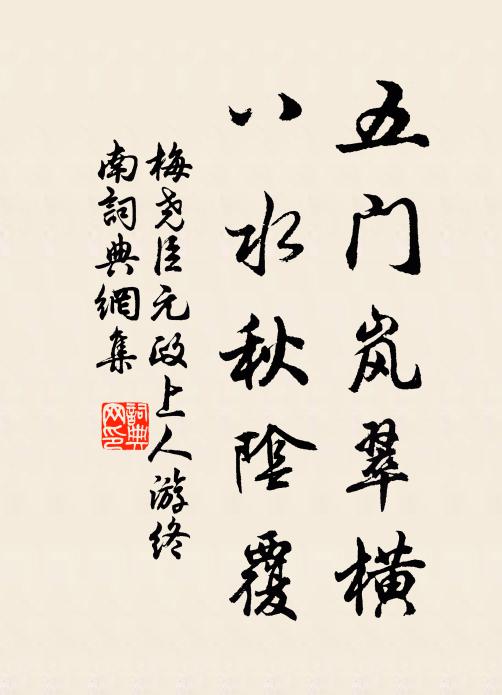 五门岚翠横
八水秋陰覆
梅尧臣元政上人游终
南詞典網集
詞典
网印